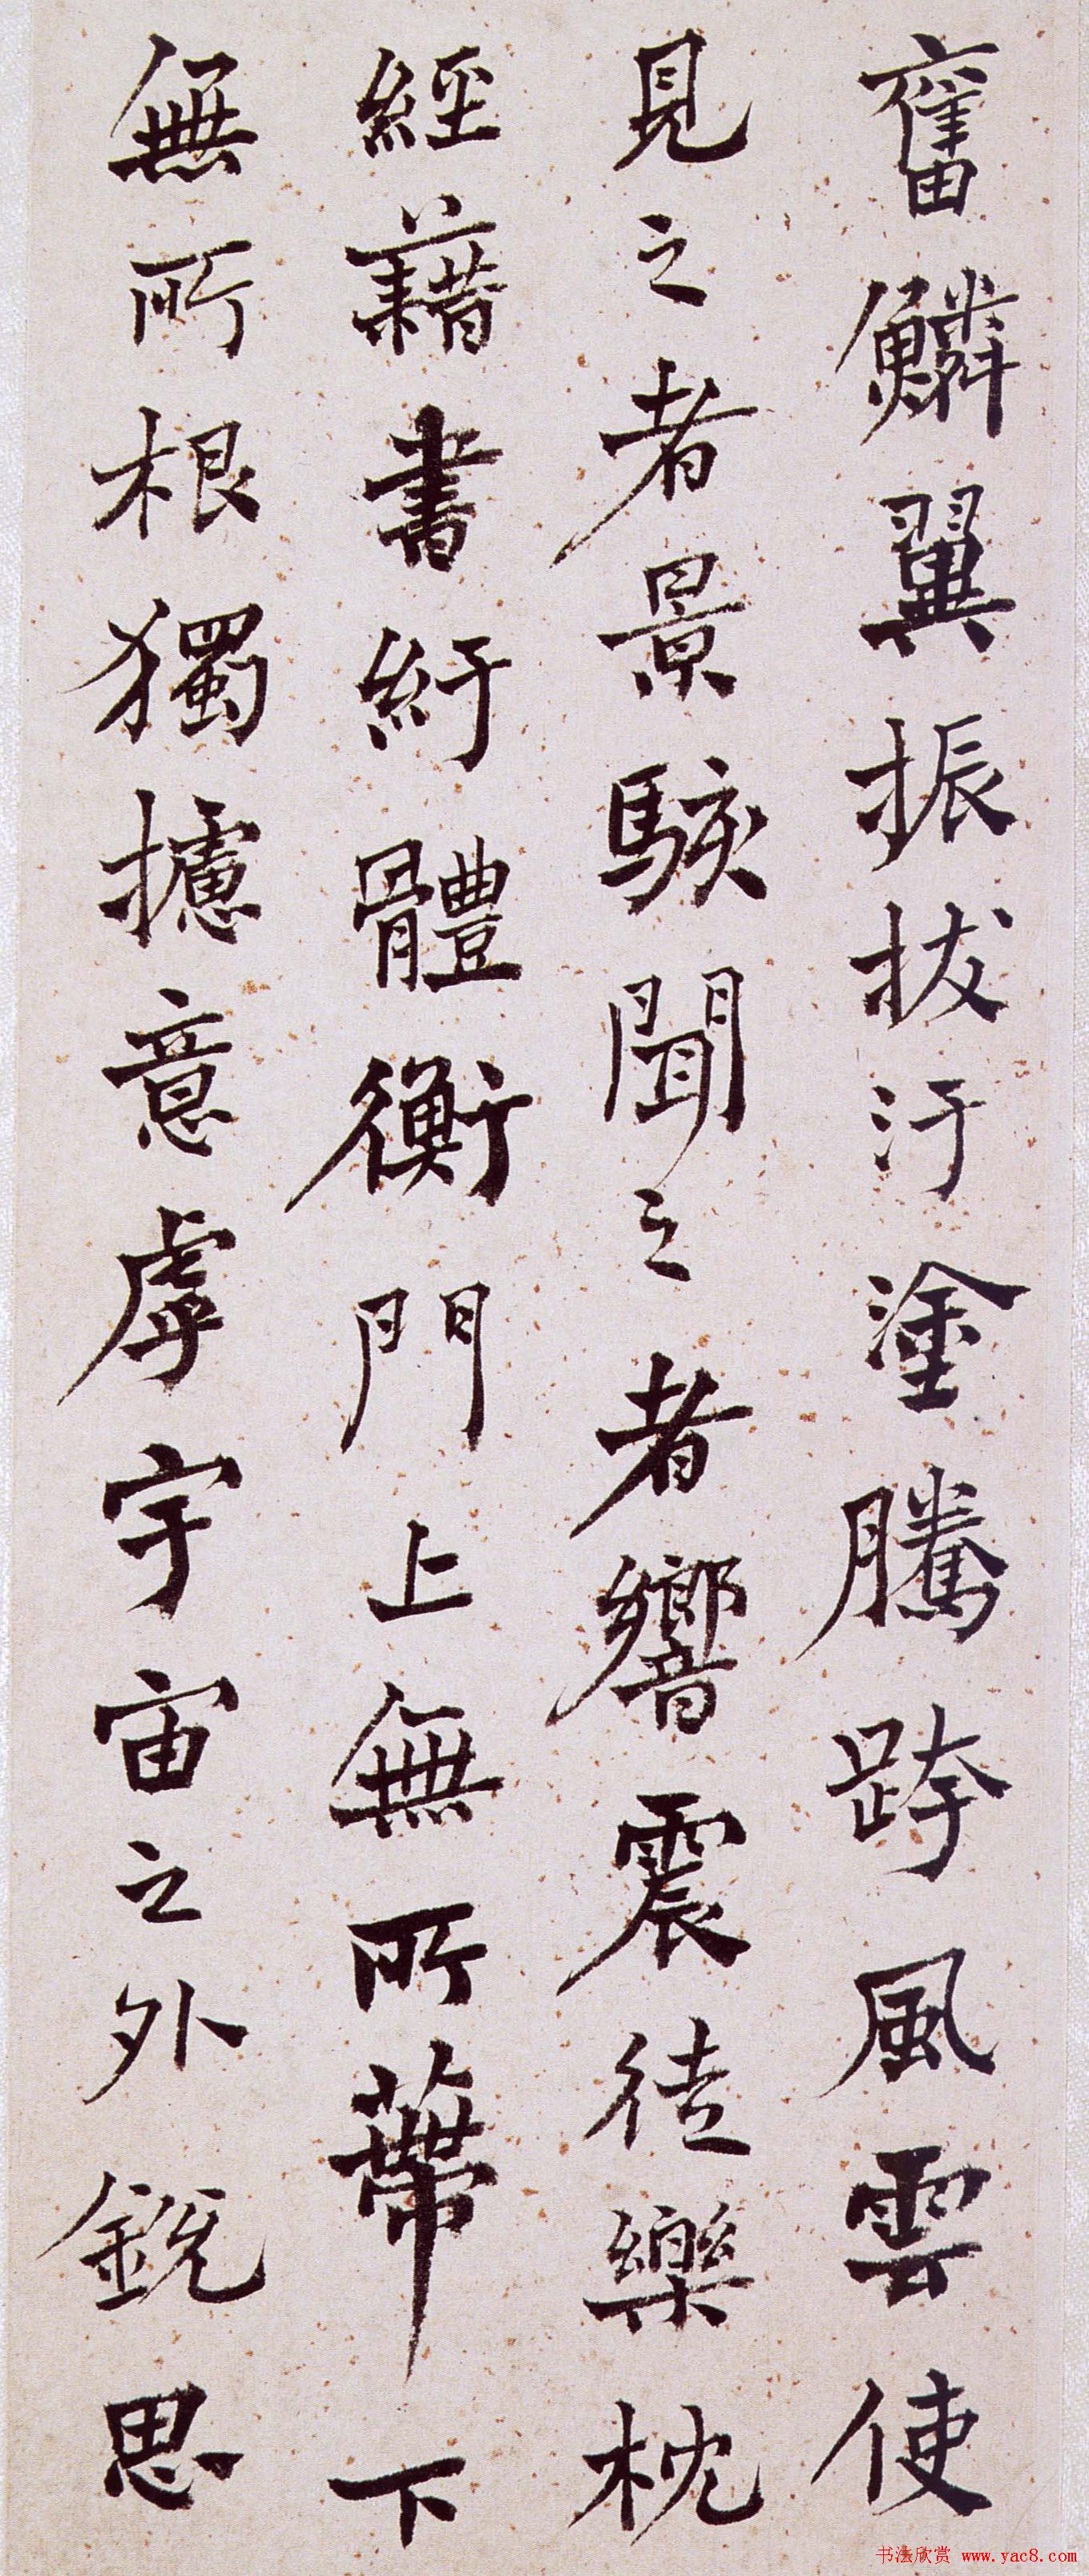 奮鱗翼振拔汙塗騰跨風雲使
見之者景駭聞之者響震徒樂枕
經藉書紆體衡門上無所蔕下
無所根獨攄意虖宇宙之外銳思
书法欣赏 www.yac8.com